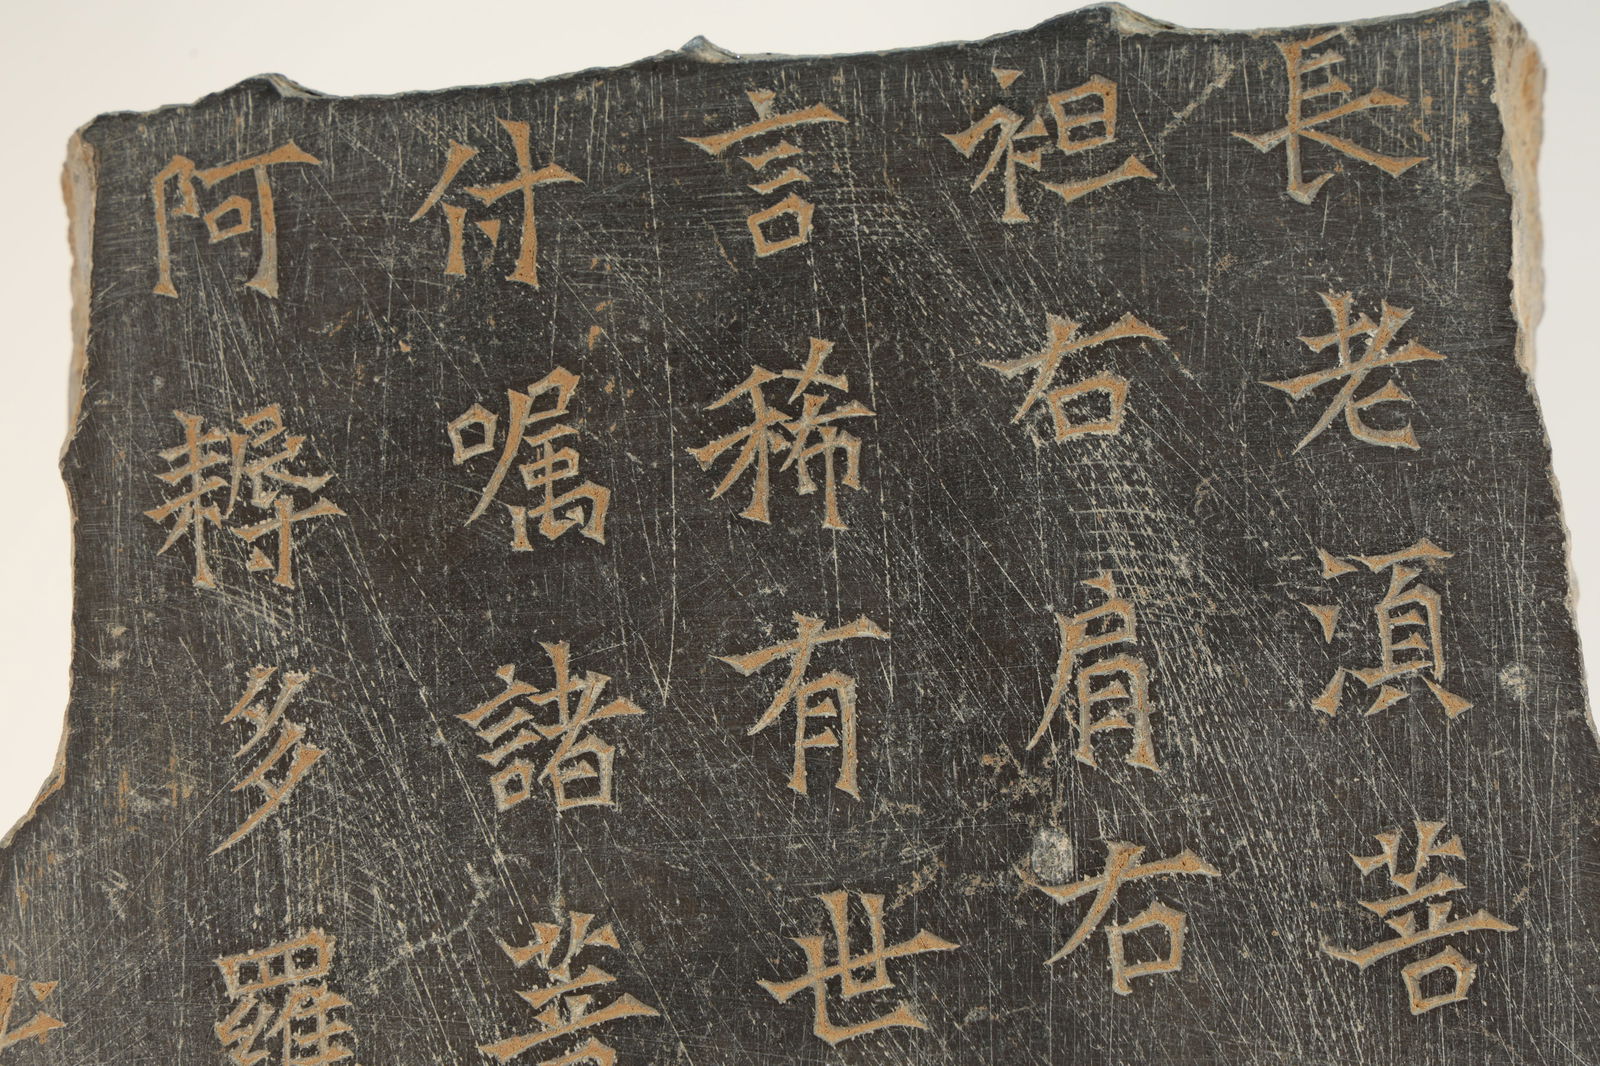 長老湏菩
袒右肩右
言稀有世
付嘱諸菩
阿耨多羅